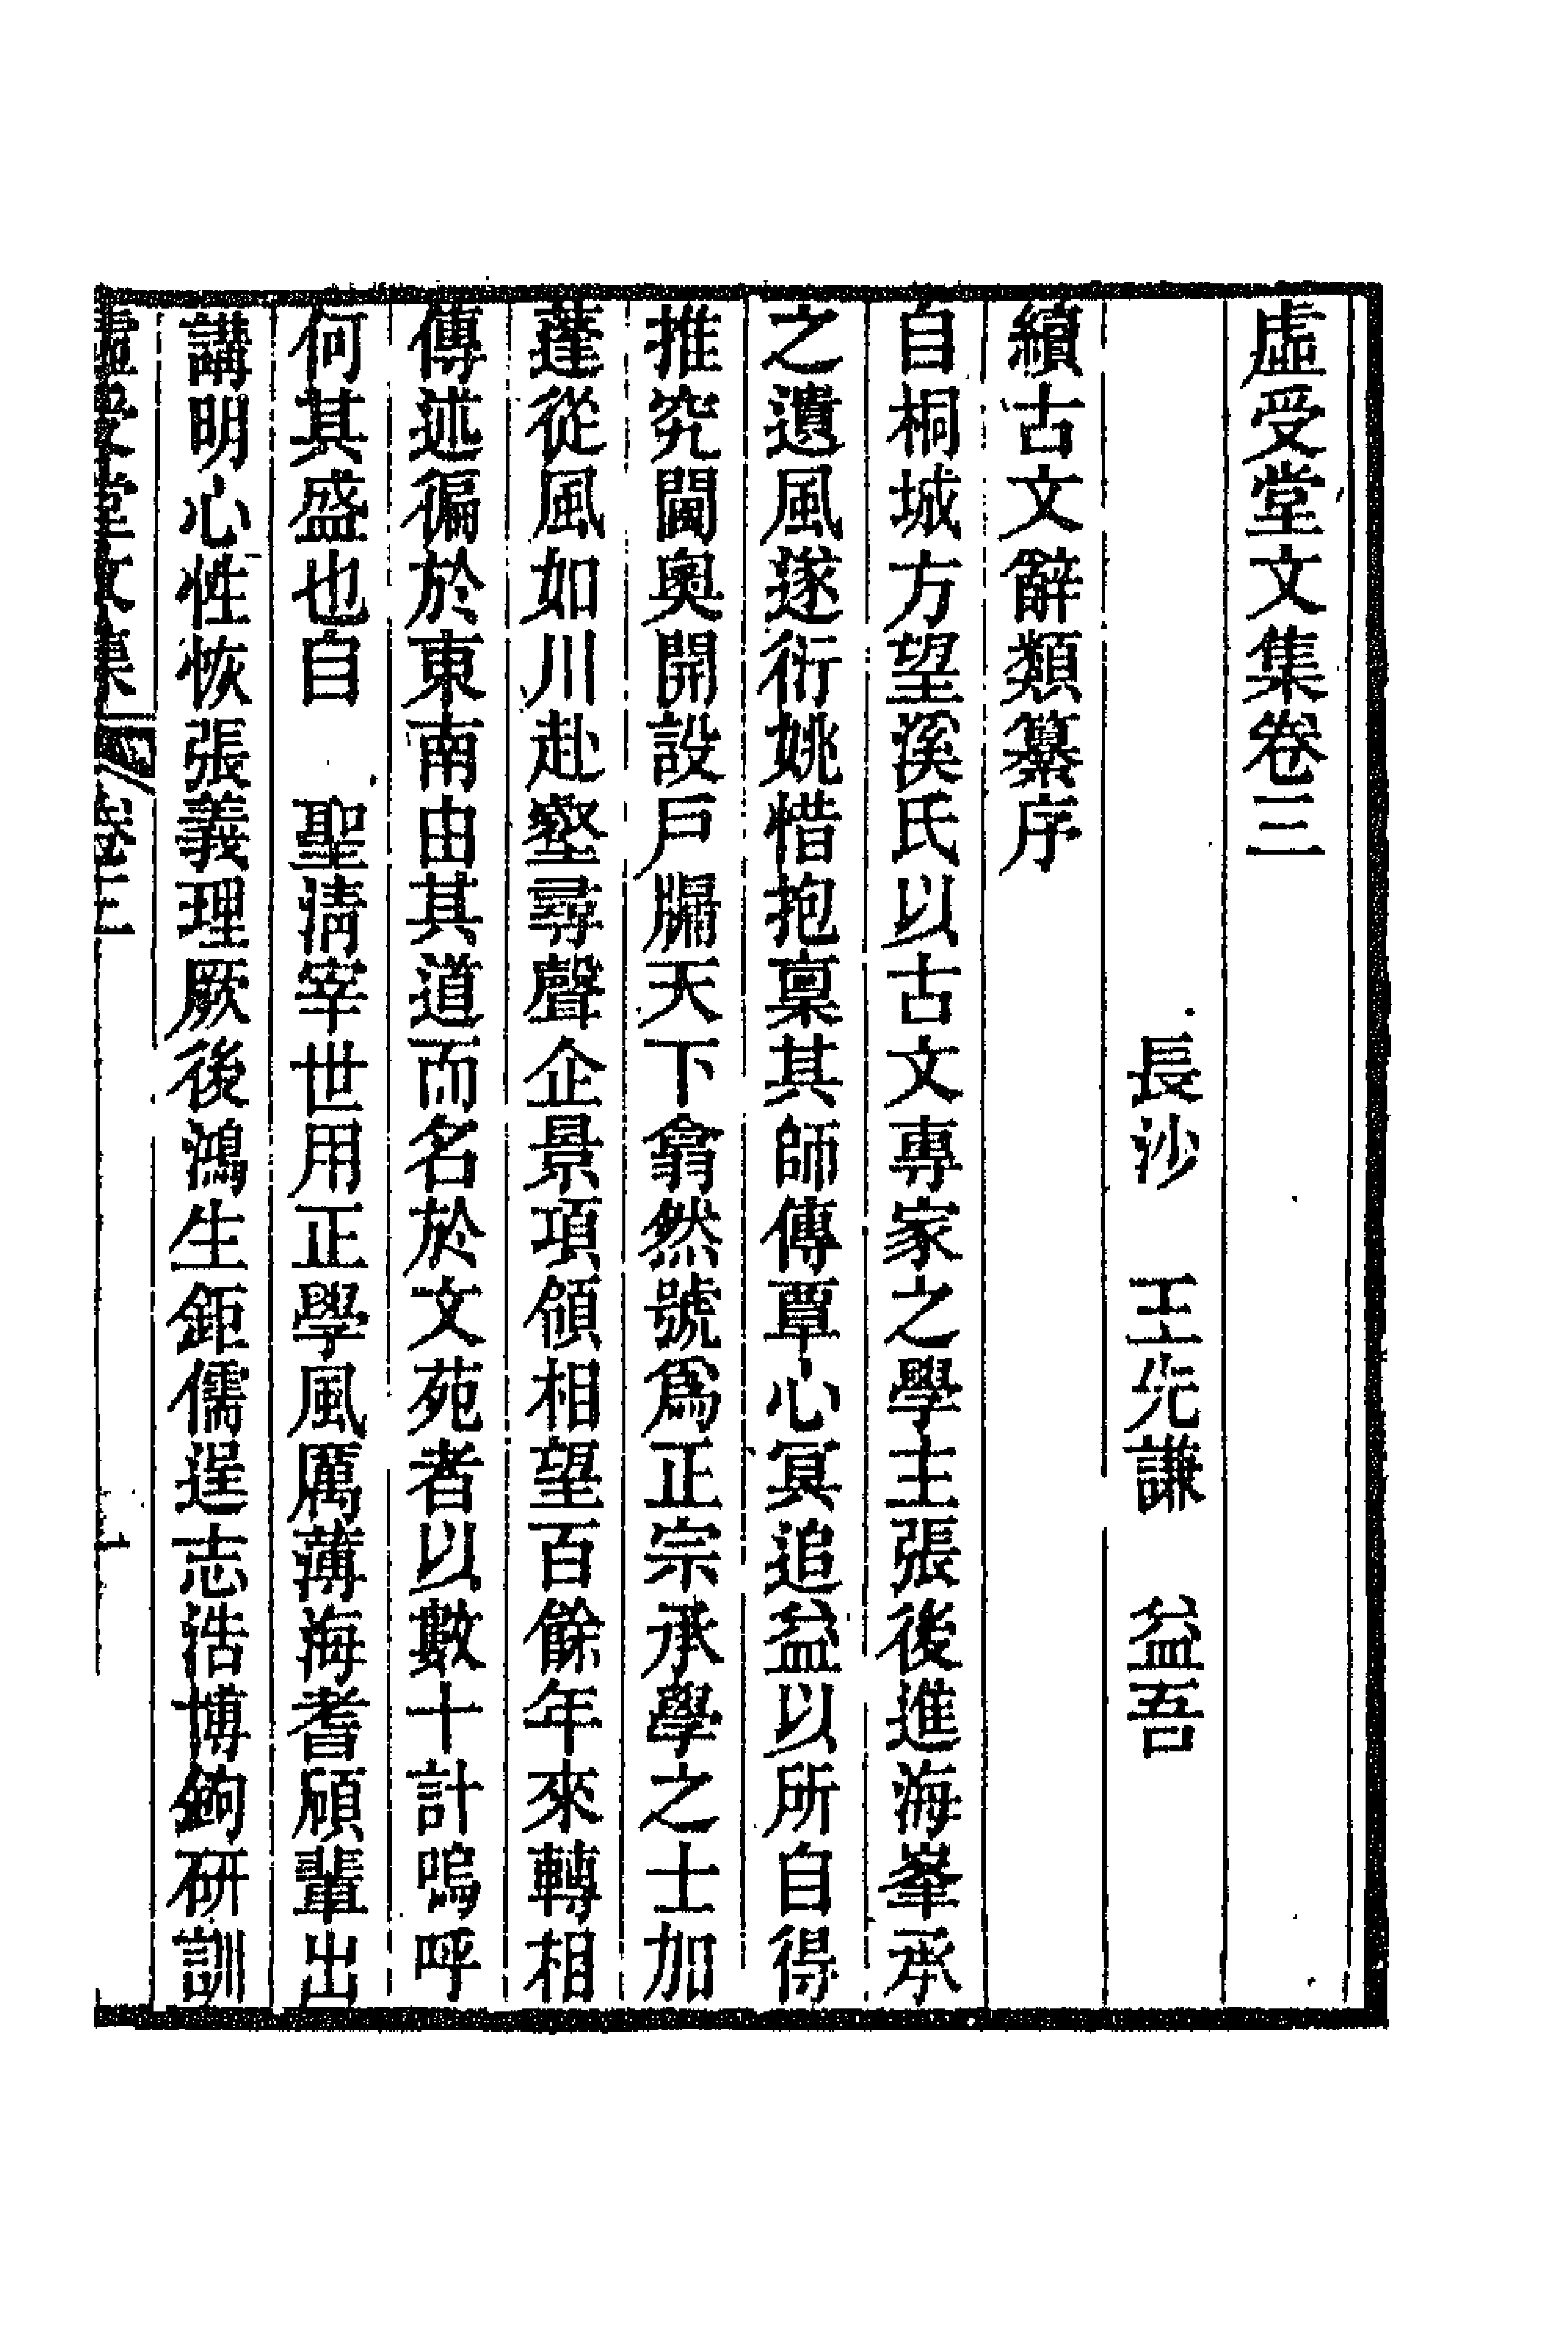 虛受堂文集卷三
長沙　王先謙　益吾
續古文辭類纂序
自桐城方望溪氏以古文專家之學主張後進海峯承
之遺風遂衍姚惜抱稟其師傳覃心冥追益以所自得
推究閫奧開設戶牖天下翕然號爲正宗承學之士如
蓬從風如川赴壑尋聲企景項領相望百餘年來轉相
傳述徧於東南由其道而名於文苑者以數十計嗚呼
何其盛也自　聖淸宰世用正學風厲薄海耆碩輩出
講明心性恢張義理厥後鴻生鉅儒逞志浩博鉤硏訓
虛受堂文集　卷三　一